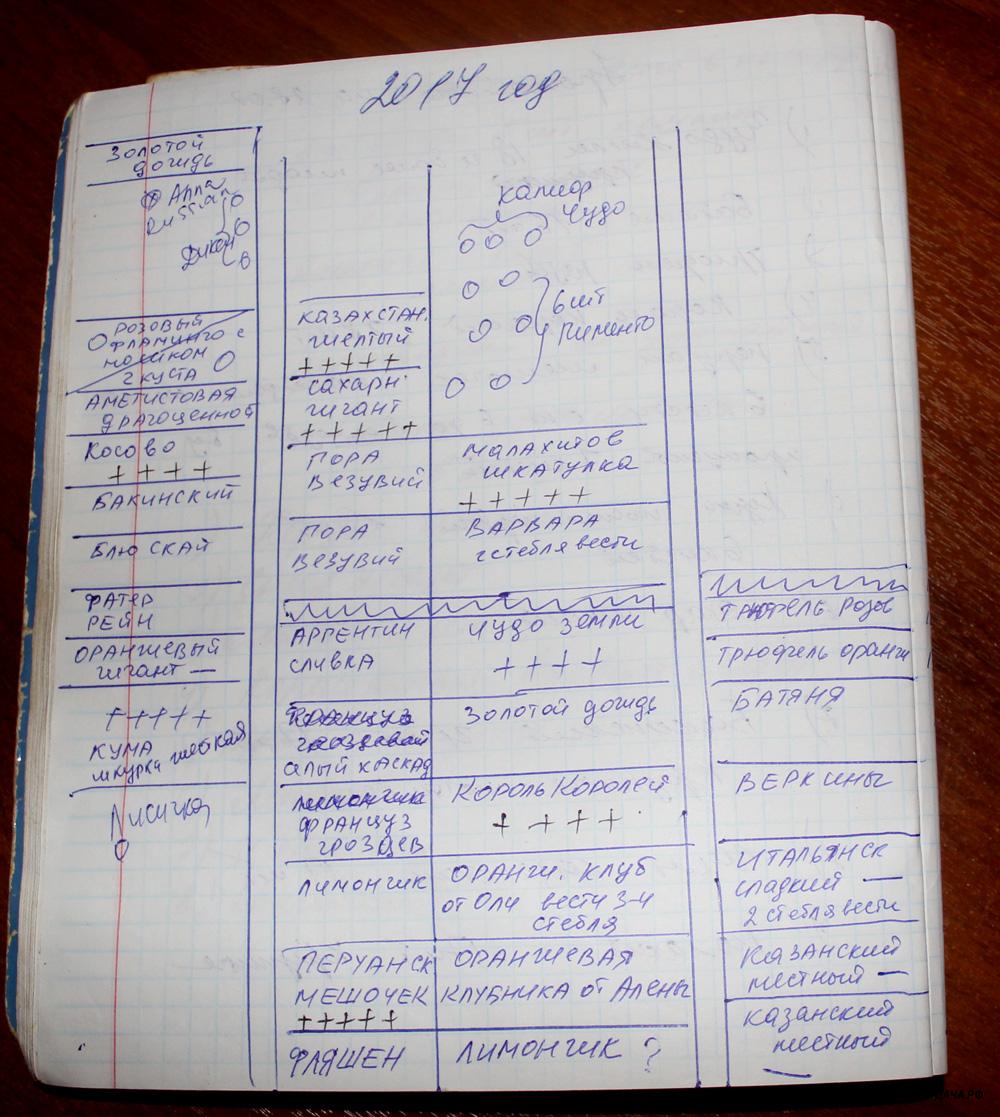 2017 год
ЗОЛОТОЙ
ДОЖДЬ
Алла
Russian
Дикой
РОЗОВЫЙ
ФЛАМИНГО с
носиком
2 куста
АМЕТИСТОВАЯ
ДРАГОЦЕННОЙ
КОСОВО
+ + + +
БАКИНСКИЙ
БЛЮ СКАЙ
ФАТЕР
РЕЙН
ОРАНЖЕВЫЙ
гигант —
+ + + + +
КУМА
шкурка жесткая
Лисичка
КАЗАХСТАН.
ЖЕЛТЫЙ
+++++
САХАРН.
гигант
+++++
ГОРА
ВЕЗУВИЙ
ГОРА
ВЕЗУВИЙ
АРГЕНТИН
СЛИВКА
алый каскад
ФРАНЦУЗ
ГРОЗДЕВ
ЛИМОНЧИК
ПЕРУАНСК
МЕШОЧЕК
+++++
ФЛЯШЕН
калиф
Чудо
6 шт
пименто
МАЛАХИТОВ
ШКАТУЛКА
+ + + + +
ВАРВАРА
2 стебля вести
ЧУДО ЗЕМЛИ
+ + + +
ЗОЛОТОЙ ДОЖДЬ
КОРОЛЬ КОРОЛЕЙ
+ + + +
ОРАНЖ. КЛУБ
от Оли вести 3-4
стебля
ОРАНЖЕВАЯ
КЛУБНИКА от Алены
ЛИМОНЧИК ?
ТРЮФЕЛЬ РОЗОВ
ТРЮФЕЛЬ ОРАНЖ
БАТЯНЯ
ВЕРКИНЫ
ИТАЛЬЯНСК
сладкий —
2 стебля вести
КАЗАНСКИЙ
местный —
КАЗАНСКИЙ
местный
—